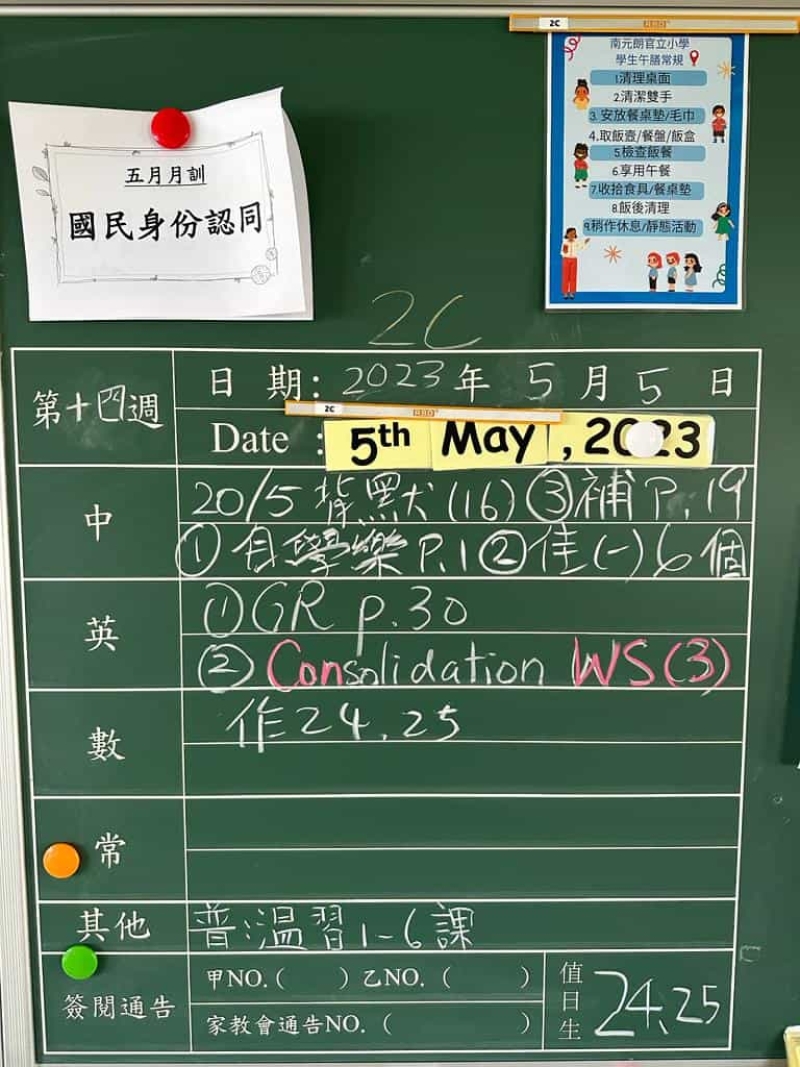 2C RBD
南元朗官立小學
學生午膳常規
1.清理桌面
2.清潔雙手
3.安放餐桌墊/毛巾
4.取飯壺/餐盤/飯盒
5.檢查飯餐
6.享用午餐
7.收拾食具/餐桌墊
8.飯後清理
9.稍作休息/靜態活動
五月月訓
國民身份認同
2C
第十四週
日期：2023年5月5日
2C RBD
Date : 5th May , 2023
中
20/5 背默(16) ③補P.19
①自學樂P.1 ②佳(一)6個
英
①GR p.30
②Consolidation WS(3)
數
作24.25
常
其他
普:溫習1-6課
簽閱通告
甲NO.( ) 乙NO.( )
家教會通告NO.( )
值日生
24.25